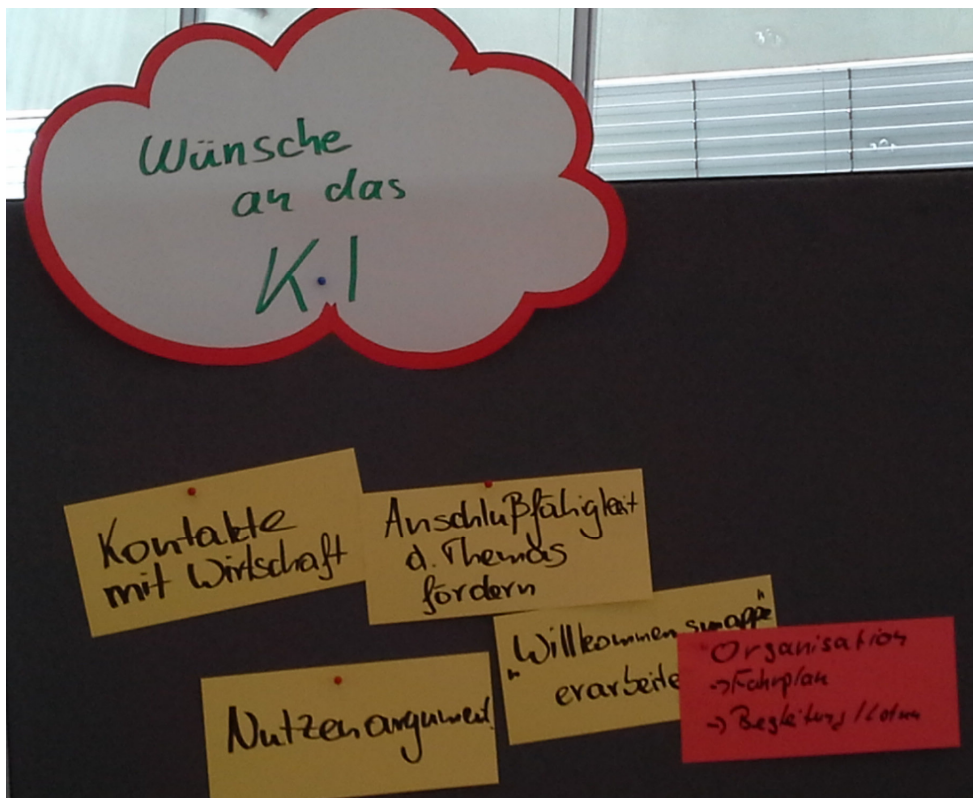 Wünsche
an das
K.I
Kontakte
mit Wirtschaft
Anschlußfähigkeit
d. Themas
fördern
"Willkommensmappe"
erarbeite
Nutzenargument
Organisation
→ Fahrplan
→ Begleitung/Lotsen